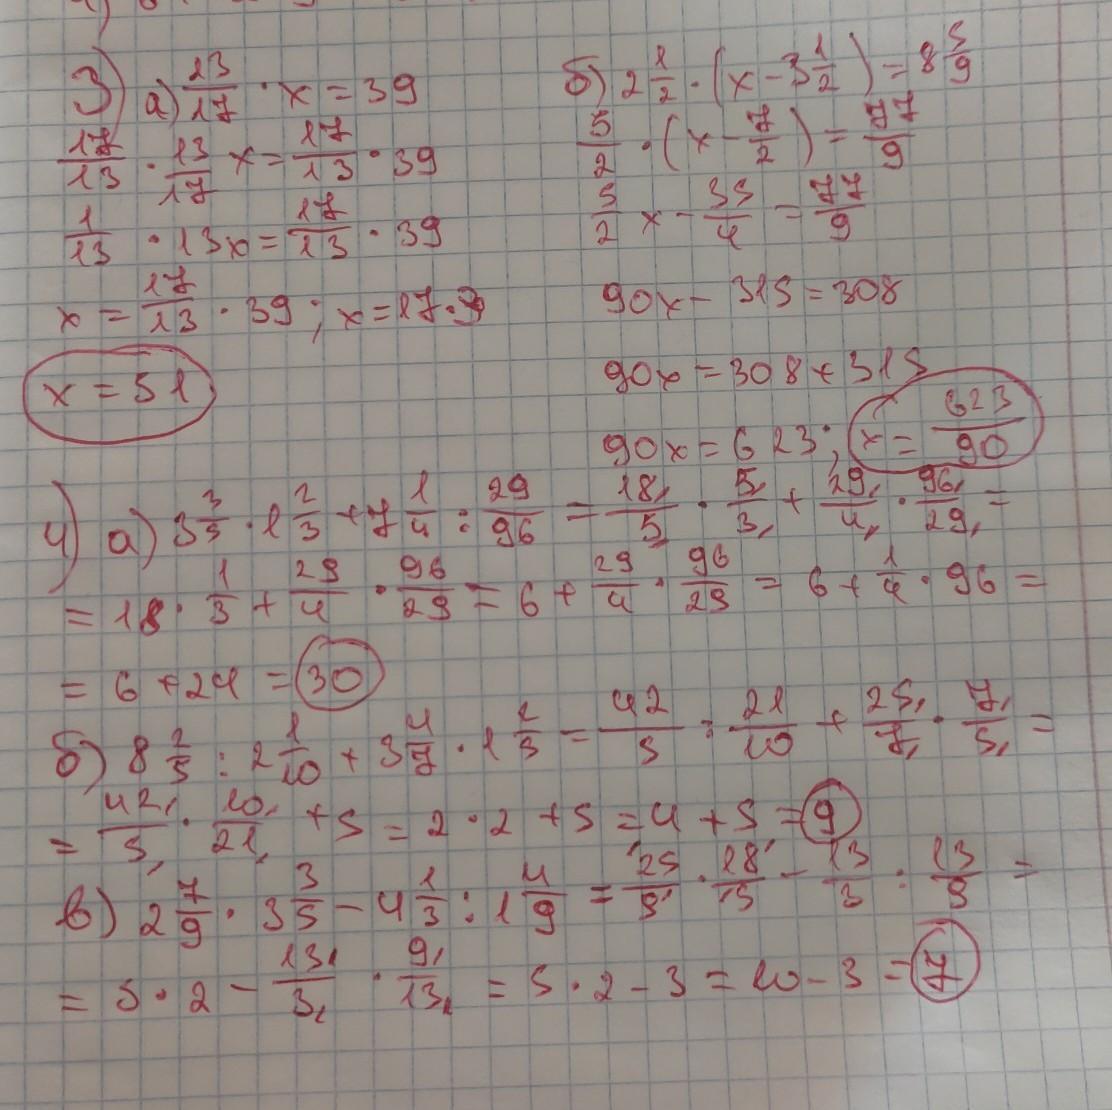 3) а) 13/17 · x = 39
17/13 · 13/17 x = 17/13 · 39
1/13 · 13x = 17/13 · 39
x = 17/13 · 39; x = 17·3
x = 51
б) 2 1/2 · (x − 3 1/2) = 8 5/9
5/2 · (x − 7/2) = 77/9
5/2 x − 35/4 = 77/9
90x − 315 = 308
90x = 308 + 315
90x = 623; x = 623/90
4) а) 3 3/5 · 1 2/3 + 7 1/4 : 29/96 = 18/5 · 5/3 + 29/4 · 96/29 =
= 18 · 1/3 + 29/4 · 96/29 = 6 + 29/4 · 96/29 = 6 + 1/4 · 96 =
= 6 + 24 = 30
б) 8 2/5 : 2 1/10 + 3 4/7 · 1 2/5 = 42/5 : 21/10 + 25/7 · 7/5 =
= 42/5 · 10/21 + 5 = 2 · 2 + 5 = 4 + 5 = 9
в) 2 7/9 · 3 3/5 − 4 1/3 : 1 4/9 = 25/9 · 18/5 − 13/3 : 13/9 =
= 5 · 2 − 13/3 · 9/13 = 5 · 2 − 3 = 10 − 3 = 7